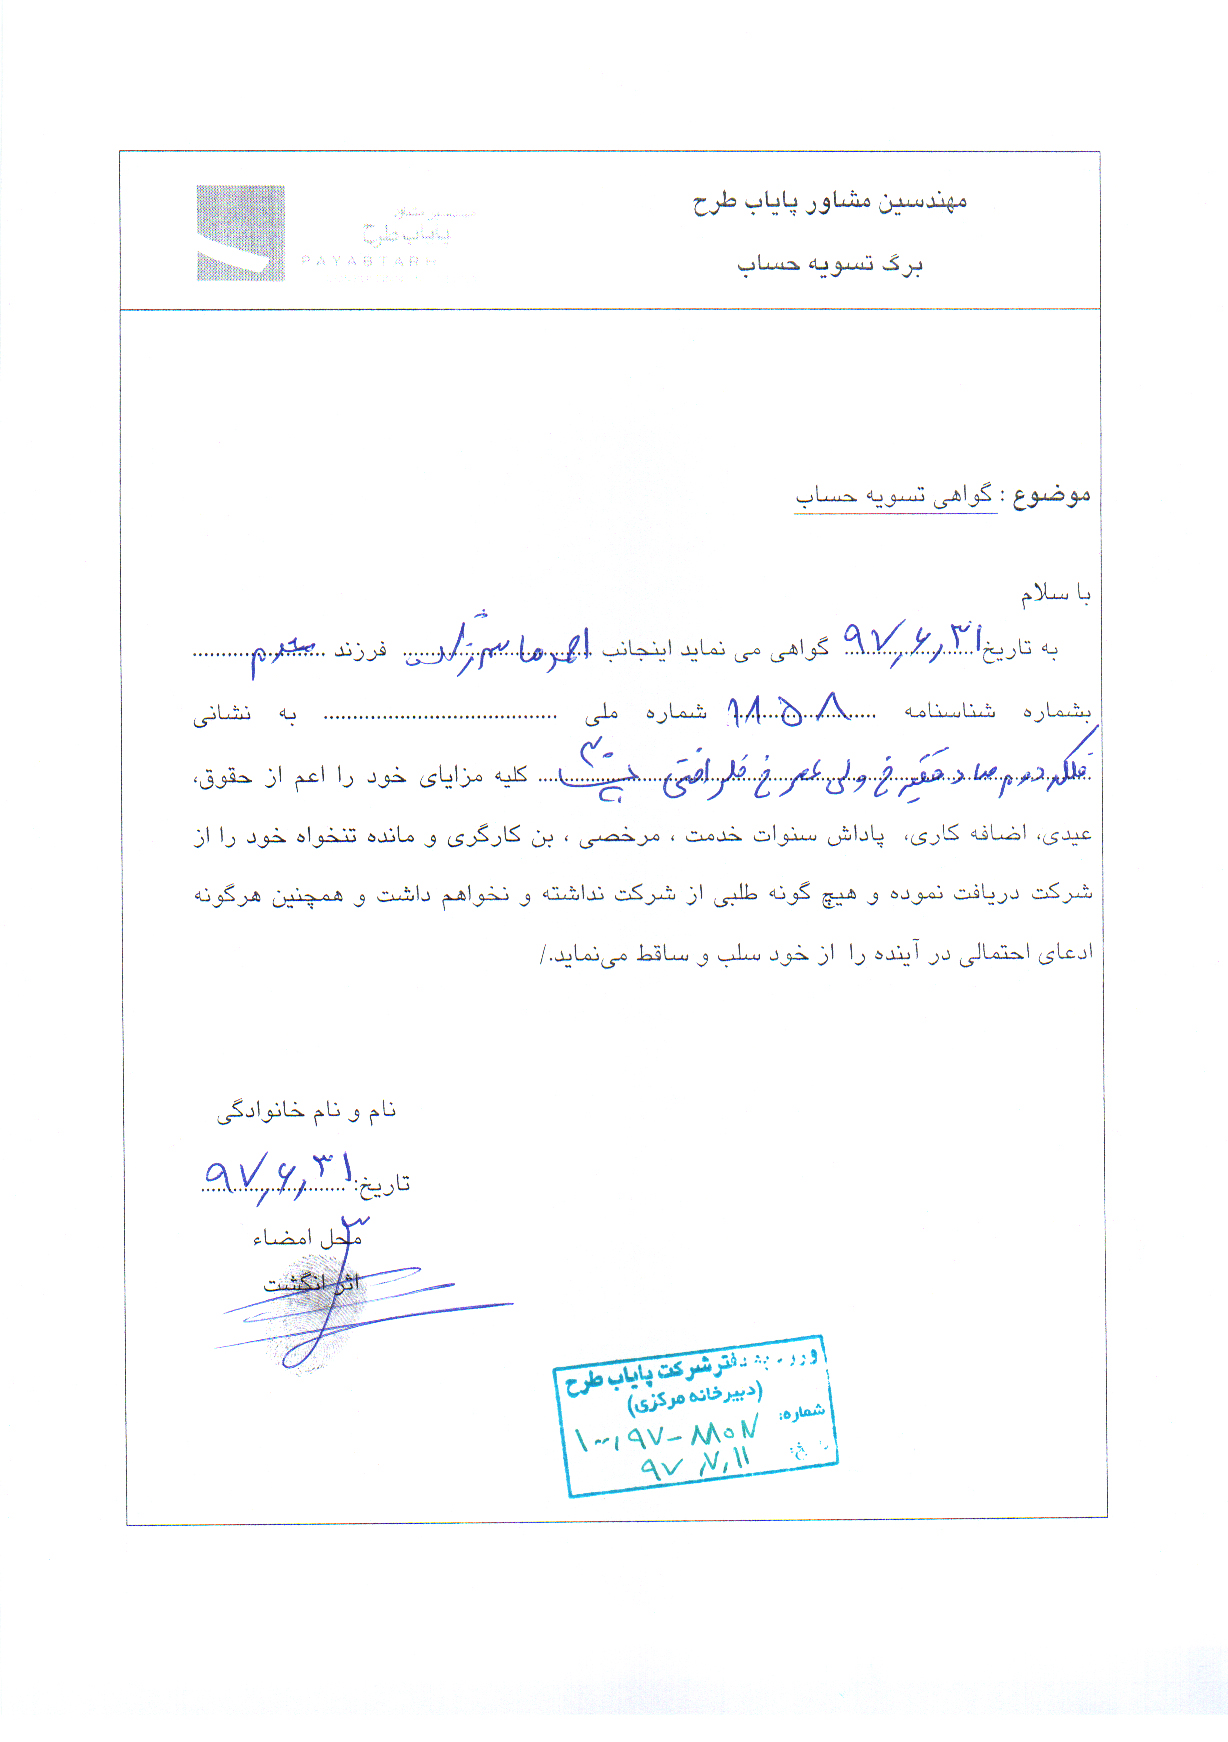 مهندسین مشاور پایاب طرح
برگ تسویه حساب
پایاب طرح
PAYABTARH
موضوع : گواهی تسویه حساب
با سلام
به تاریخ ۹۷,۶,۳۱ گواهی می نماید اینجانب احمد فرزند
بشماره شناسنامه ۱۱۵۸ شماره ملی .................... به نشانی
فلکه دوم صادقیه خ ولی عصر خ پ ۳۰ کلیه مزایای خود را اعم از حقوق،
عیدی، اضافه کاری، پاداش سنوات خدمت ، مرخصی ، بن کارگری و مانده تنخواه خود را از
شرکت دریافت نموده و هیچ گونه طلبی از شرکت نداشته و نخواهم داشت و همچنین هرگونه
ادعای احتمالی در آینده را از خود سلب و ساقط می‌نماید./
نام و نام خانوادگی
تاریخ: ۹۷,۶,۳۱
محل امضاء
اثر انگشت
ورود به دفتر شرکت پایاب طرح
(دبیرخانه مرکزی)
شماره:
۹۷,۷,۱۱